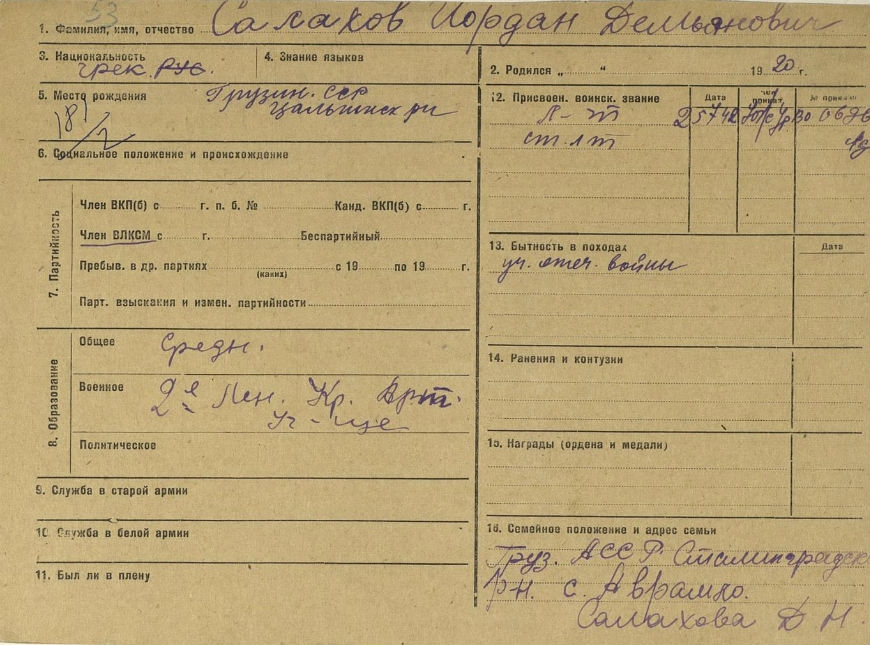 53
1. Фамилия, имя, отчество Салахов Иордан Демьянович
3. Национальность грек. рус.
4. Знание языков
2. Родился „ “ 1920 г.
5. Место рождения Грузин. сср
цальпинск рн
181/2
6. Социальное положение и происхождение
7. Партийность
Член ВКП(б) с г. п. б. № Канд. ВКП(б) с г.
Член ВЛКСМ с г. Беспартийный
Пребыв. в др. партиях с 19 по 19 г.
(каких)
Парт. взыскания и измен. партийности
8. Образование
Общее Средн.
Военное 2е Лен. Кр. Арт.
уч-ще
Политическое
9. Служба в старой армии
10. Служба в белой армии
11. Был ли в плену
12. Присвоен. воинск. звание Дата Чей приказ № приказа
Л-т 25 7 42 30 0676
ст. лт
13. Бытность в походах Дата
уч. отеч. войны
14. Ранения и контузии
15. Награды (ордена и медали)
16. Семейное положение и адрес семьи
Груз. АССР. Сталинградск
р-н. с. Аврамло.
Салахова Д Н.